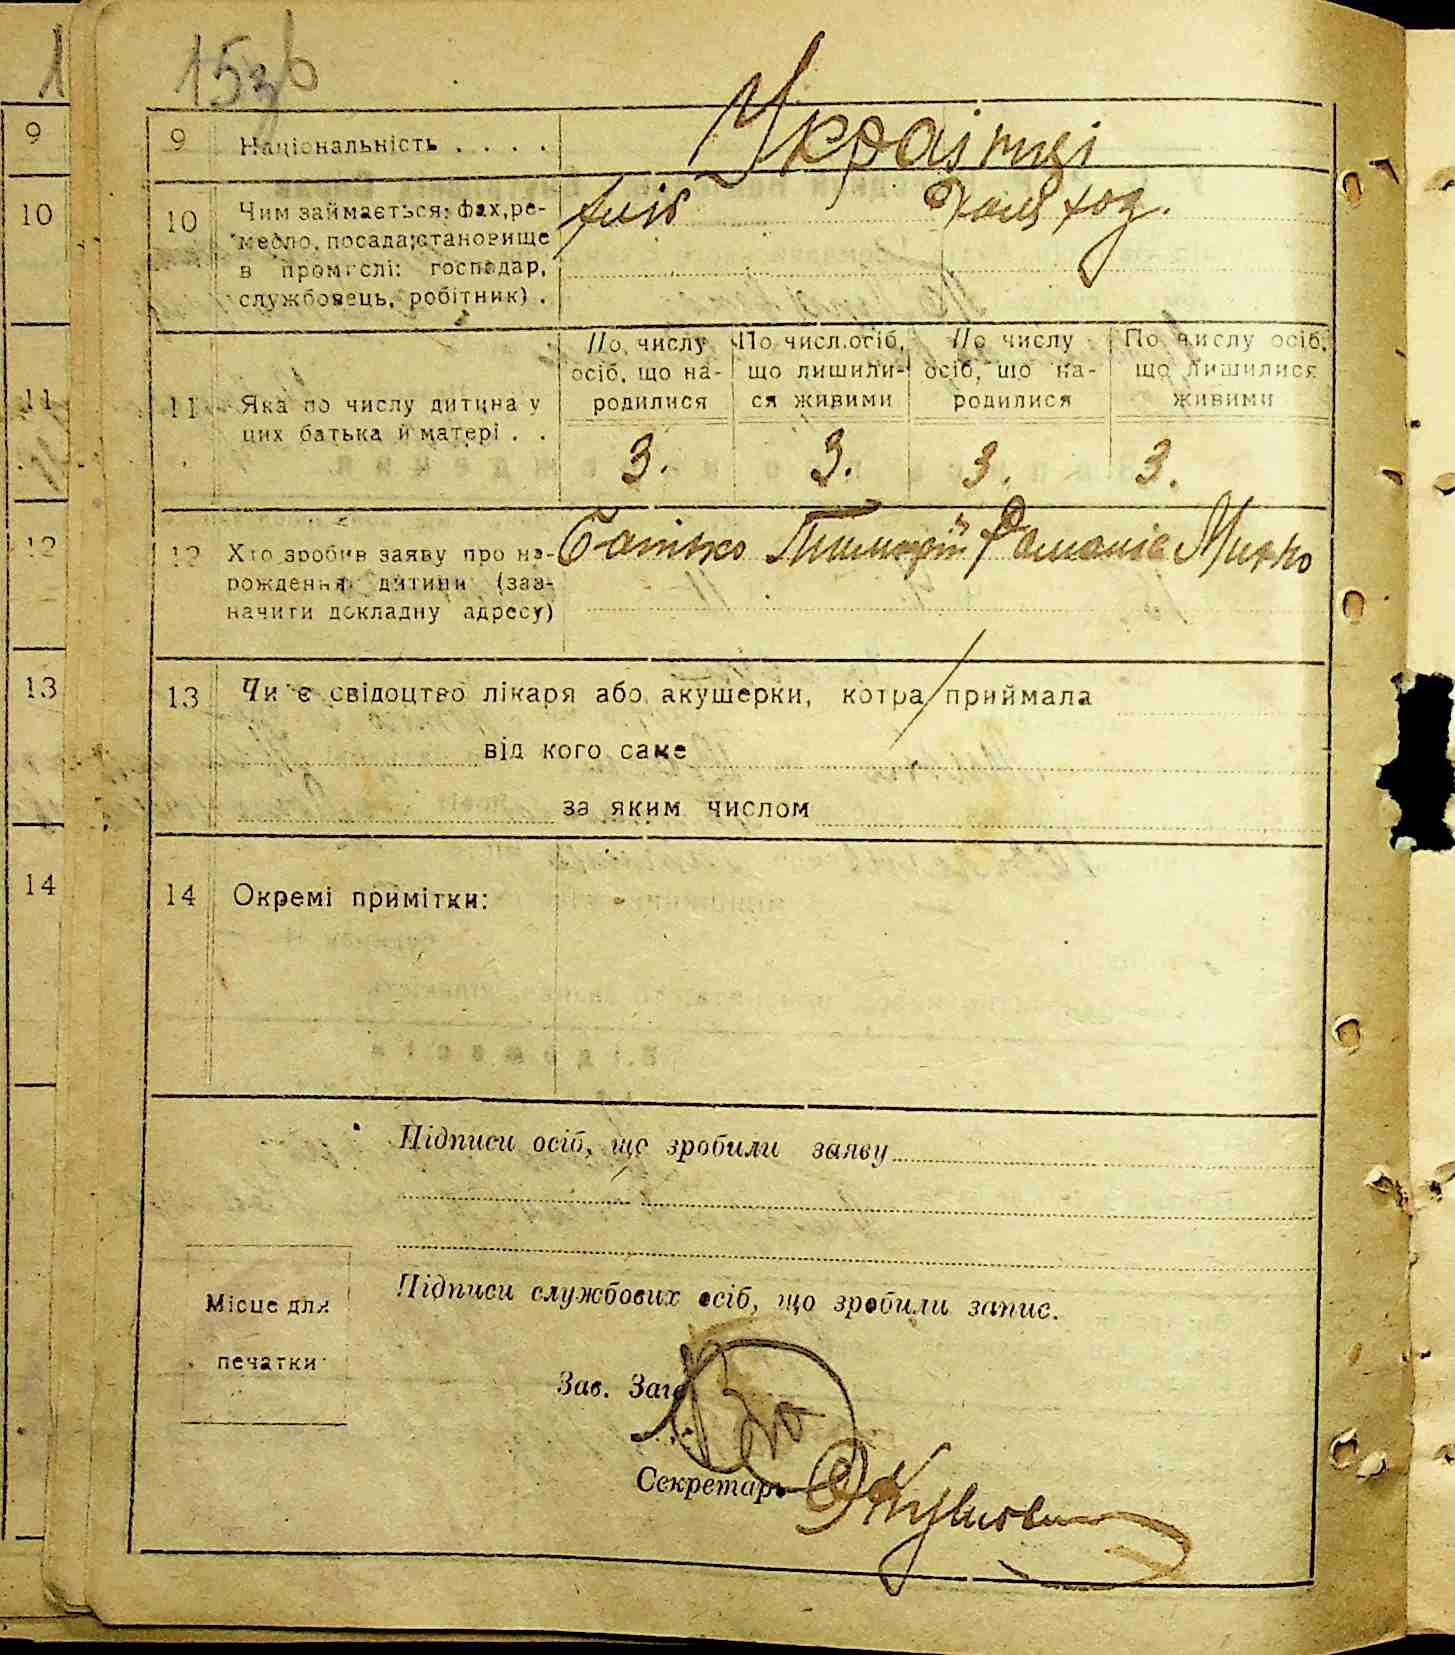 153б
9 Національність . . . . Українці
10 Чим займається: фах, ре-
месло, посада; становище
в промислі: господар,
службовець, робітник) .
хліб
11 Яка по числу дитина у
цих батька й матері . .
По числу осіб, що на-родилися
По числ. осіб, що лишили-ся живими
По числу осіб, що на-родилися
По числу осіб, що лишилися живими
3. 3. 3. 3.
12 Хто зробив заяву про на-
рождення дитини (заз-
начити докладну адресу)
Батько Тимофій Романів
13 Чи є свідоцтво лікаря або акушерки, котра приймала
від кого саме
за яким числом
14 Окремі примітки:
Підписи осіб, що зробили заяву
Місце для
печатки
Підписи службових осіб, що зробили запис.
Зав. Заг
Секретарь
9
10
11
12
13
14